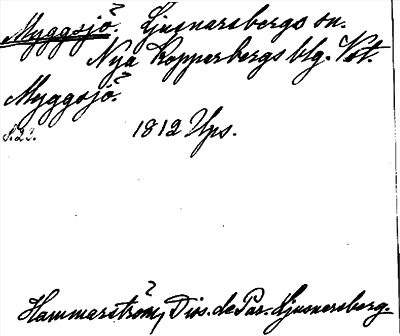 Myggsjö. Ljusnarsbergs sn.
Nya Kopparbergs blg. Vst.
Myggsjö.
S. 23. 1812 Ups.
Hammarström, Diss. de Par. Ljusnersberg.